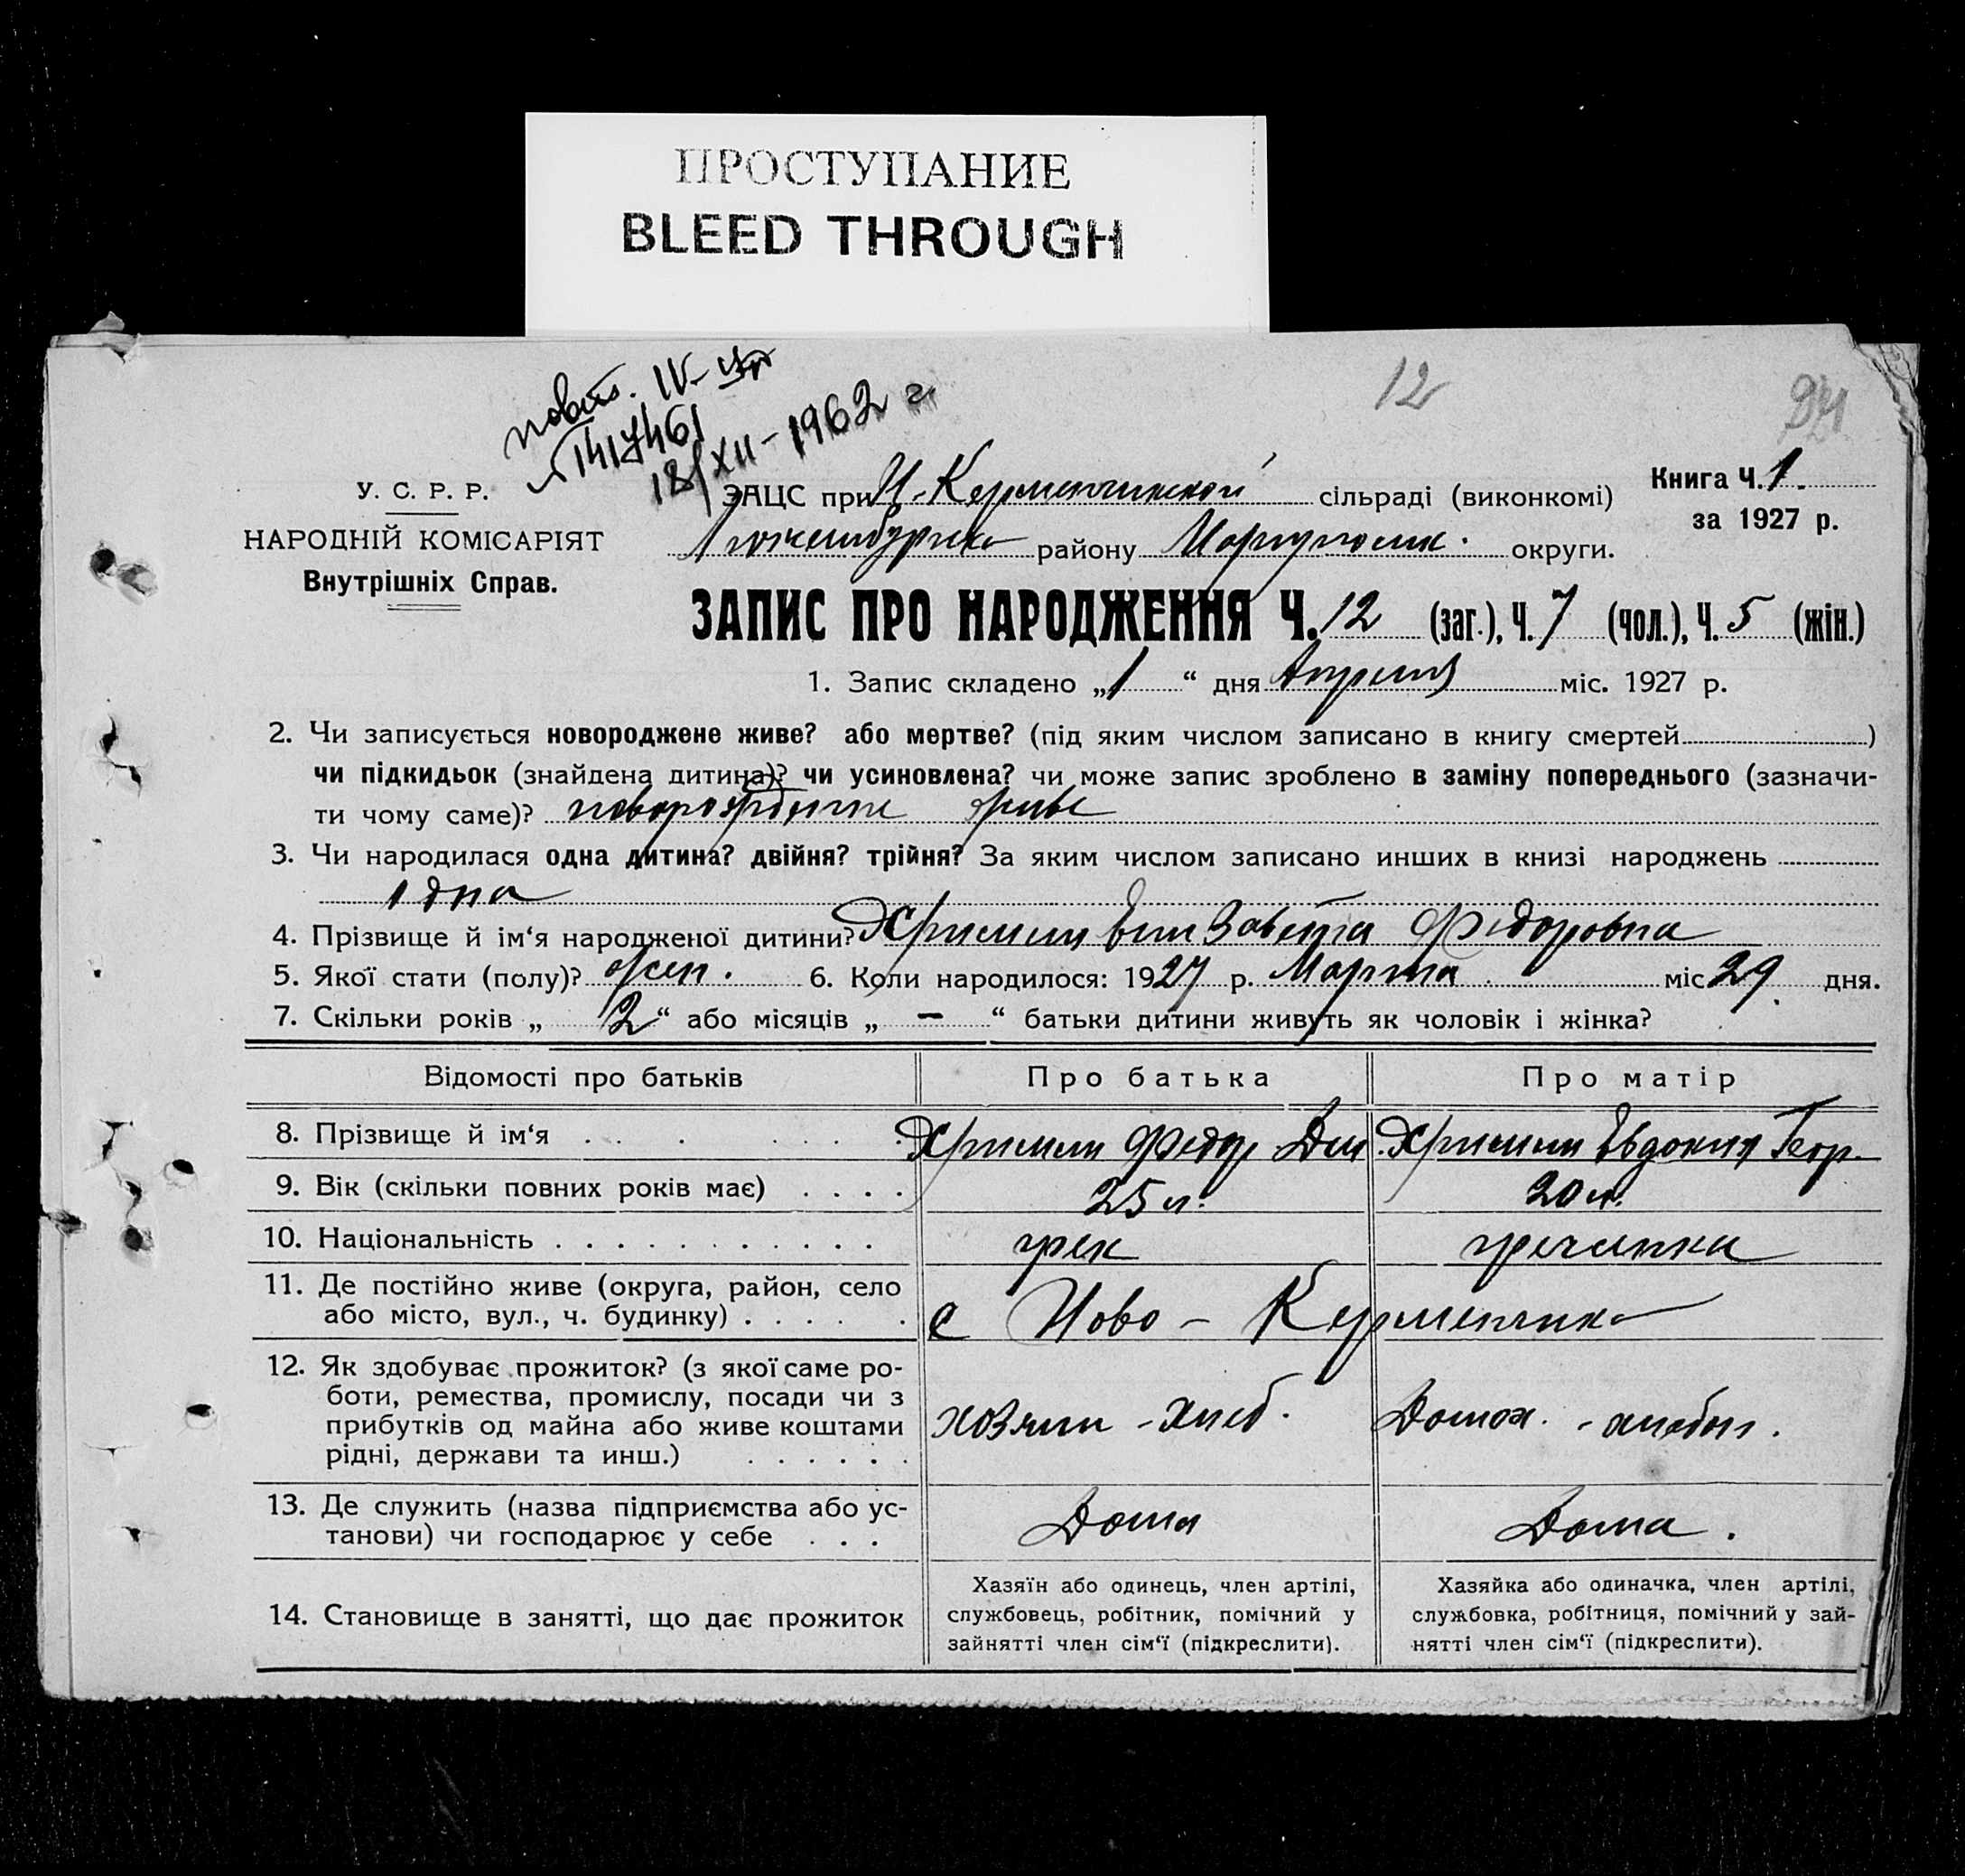 ПРОСТУПАНИЕ
BLEED THROUGH
повт. IV-
1417461
18/XII-1962 г.
12
У. С. Р. Р.
НАРОДНІЙ КОМІСАРІЯТ
Внутрішніх Справ.
ЗАЦС при Н-Керменчикской сільраді (виконкомі)
району Мариупольск. округи.
Книга Ч. 1.
за 1927 р.
ЗАПИС ПРО НАРОДЖЕННЯ Ч. 12 (заг.), Ч. 7 (чол.), Ч. 5 (жін.)
1. Запис складено „1“ дня Апреля міс. 1927 р.
2. Чи записується новороджене живе? або мертве? (під яким числом записано в книгу смертей )
чи підкидьок (знайдена дитина)? чи усиновлена? чи може запис зроблено в заміну попереднього (зазначи-
ти чому саме)? живе
3. Чи народилася одна дитина? двійня? трійня? За яким числом записано инших в книзі народжень
одна
4. Прізвище й ім‘я народженої дитини? Елизавета Федоровна
5. Якої статі (полу)? жен. 6. Коли народилося: 1927 р. Марта міс 29 дня.
7. Скільки років „2“ або місяців „–“ батьки дитини живуть як чоловік і жінка?
Відомості про батьків Про батька Про матір
8. Прізвище й ім‘я Федор Дм. Евдокия Геор.
9. Вік (скільки повних років має) 25 л. 20 л.
10. Національність грек гречанка
11. Де постійно живе (округа, район, село
або місто, вул., ч. будинку) с Ново-Керменчик
12. Як здобуває прожиток? (з якої саме ро-
боти, ремества, промислу, посади чи з
прибутків од майна або живе коштами
рідні, держави та инш.) хозяин - хлеб. Домох. - хлебоп.
13. Де служить (назва підприємства або ус-
танови) чи господарює у себе Дома Дома.
14. Становище в занятті, що дає прожиток
Хазяїн або одинець, член артілі,
службовець, робітник, помічний у
зайнятті член сім‘ї (підкреслити).
Хазяйка або одиначка, член артілі,
службовка, робітниця, помічний у зай-
нятті член сім‘ї (підкреслити).